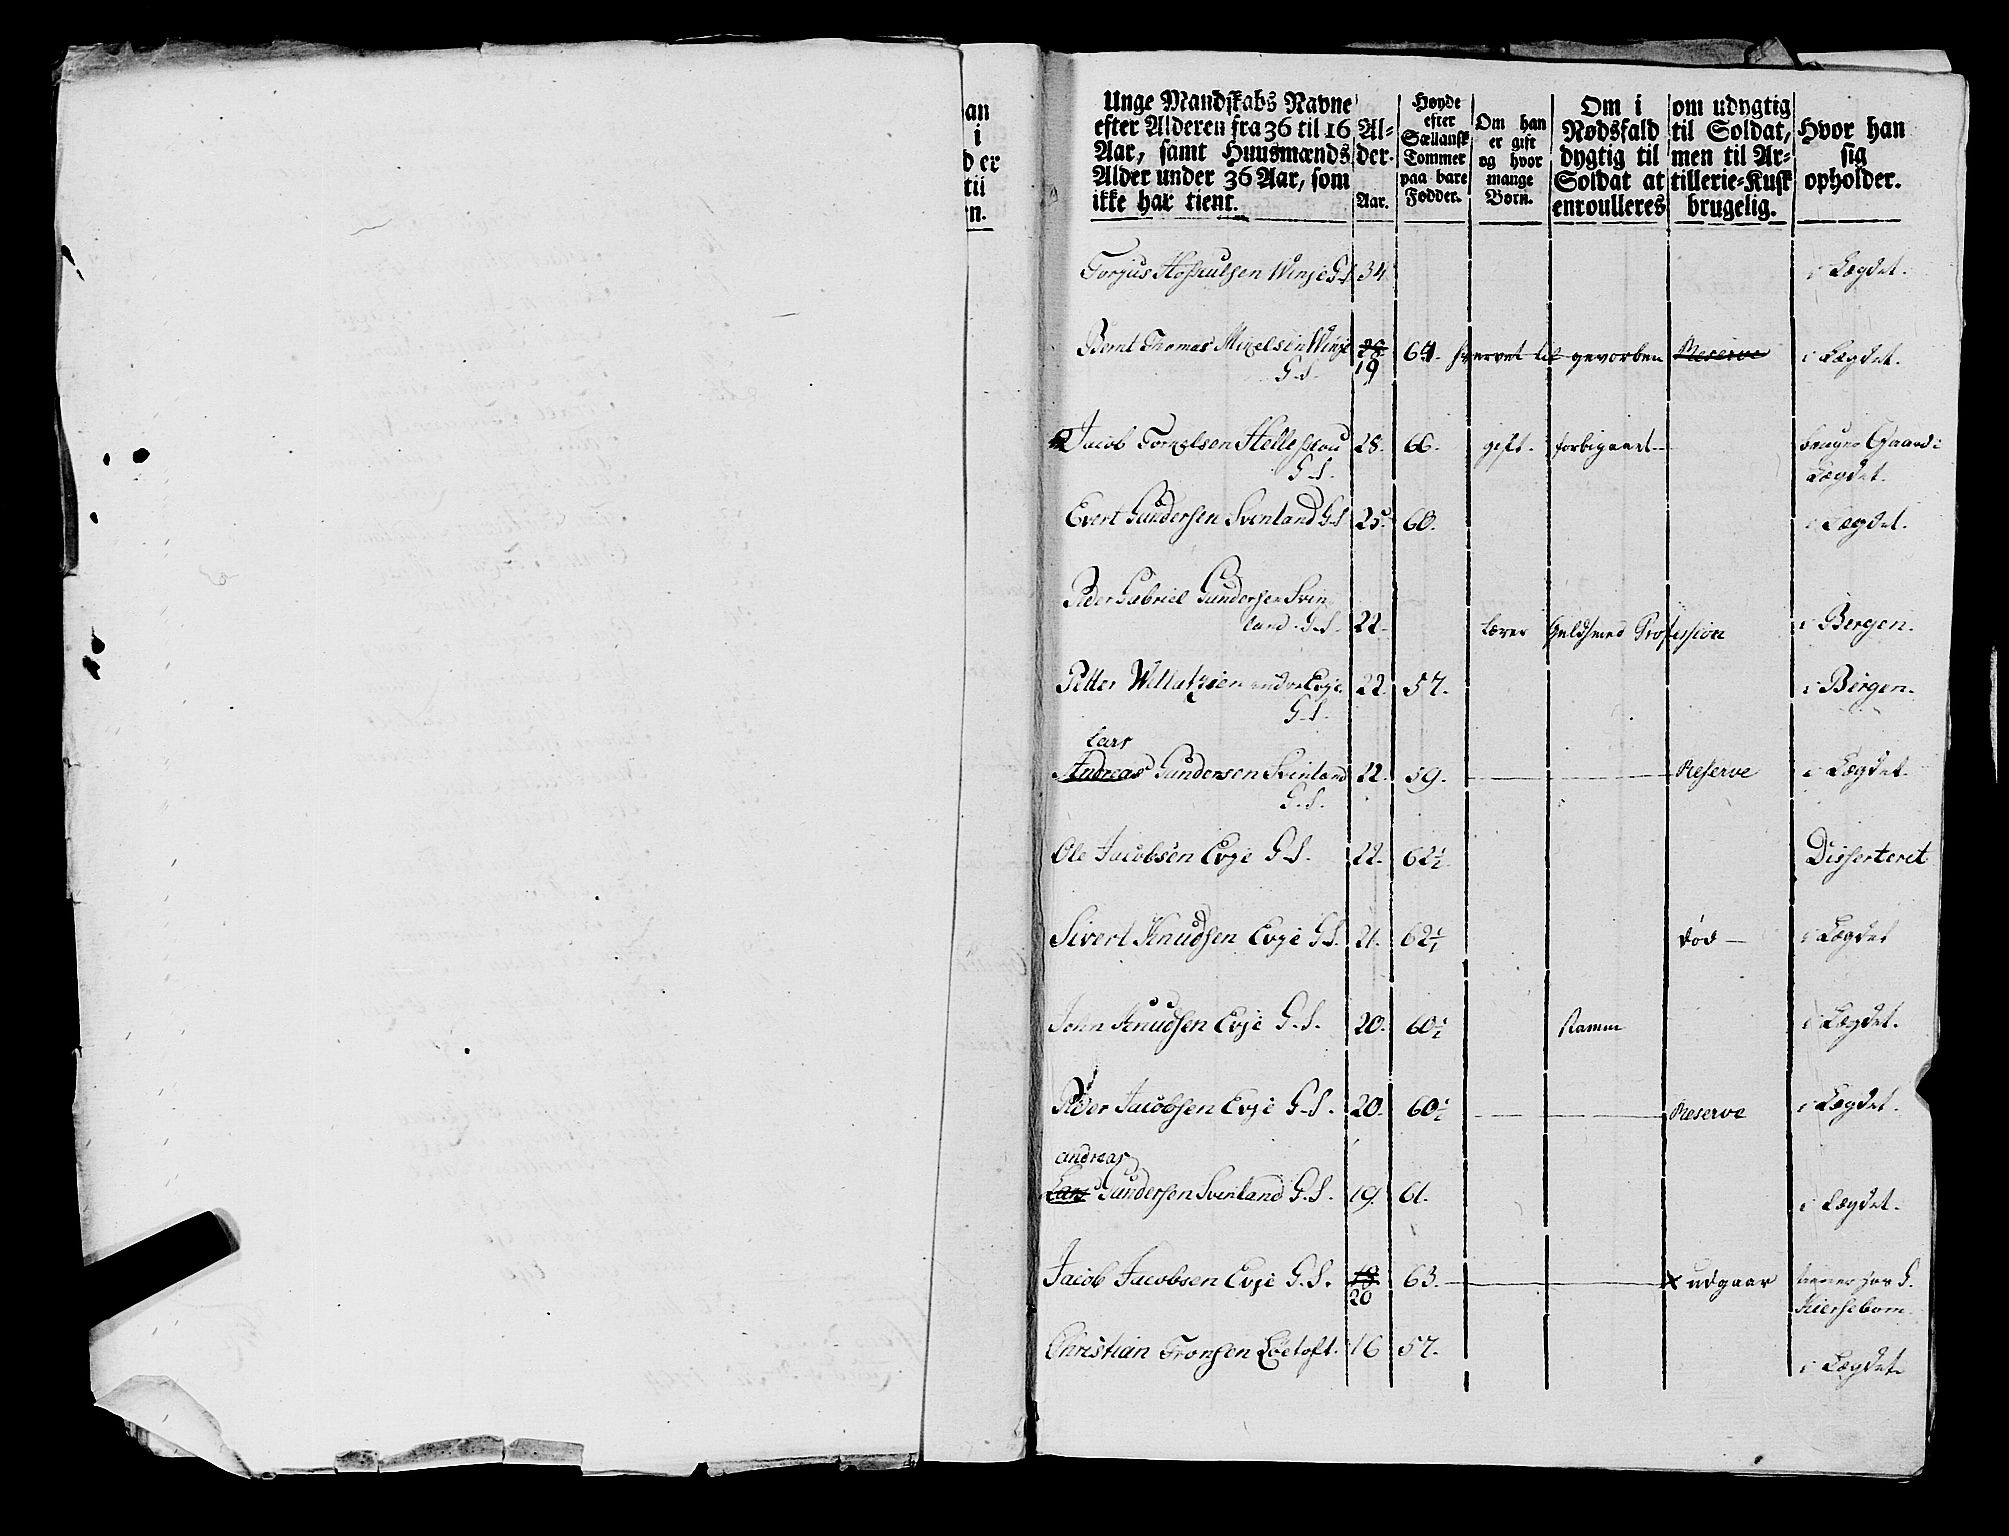 an
i
d er
til
n.
Unge Mandskabs Navne
efter Alderen fra 36 til 16
Aar, samt Huusmænds
Alder under 36 Aar, som
ikke har tient.
Al-
der.
Aar.
Høyde
efter
Sællansk
Tommer
paa bare
Fødder.
Om han
er gift
og hvor
mange
Børn.
Om i
Nødsfald
dygtig til
Soldat at
enroulleres
om udygtig
til Soldat,
men til Ar-
tillerie-Kusk
brugelig.
Hvor han
sig
opholder.
Torjus Winje G.S. 34. i Lægdet.
Bernt Thomas Mikelsen Winje 28 64. hvervet til gevorben Reserve i Lægdet.
G.S. 19
Jacob Tornelsen Hellesklau 28. 66. gift. forbigaaet bruger Gaard i
G.S. Lægdet.
Evert Gundersen Svinland G.S. 25. 60. i Lægdet.
Peder Gabriel Gundersen Svin
land. G.S. 22. lærer Guldsmed Profession i Bergen.
Petter Willatzien Evje 22. 57. i Bergen.
G.S.
Lars
Andreas Gundersen Svinland 22. 59. Reserve i Lægdet.
G.S.
Ole Jacobsen Evje G.S. 22. 62½ Disserteret
Sivert Knudsen Evje G.S. 21. 62½ død i Lægdet
John Knudsen Evje G.S. 20. 60½ Ramm i Lægdet.
Peder Jacobsen Evje G.S. 20. 60½ Reserve i Lægdet.
andreas
Lars Gundersen Svinland G.S. 19. 61. i Lægdet.
Jacob Jacobsen Evje G.S. 18 63. x udgaar tienner hos S.
20 Kiersebom.
Christian Tronsen Løetoft. 16 57. i Lægdet.